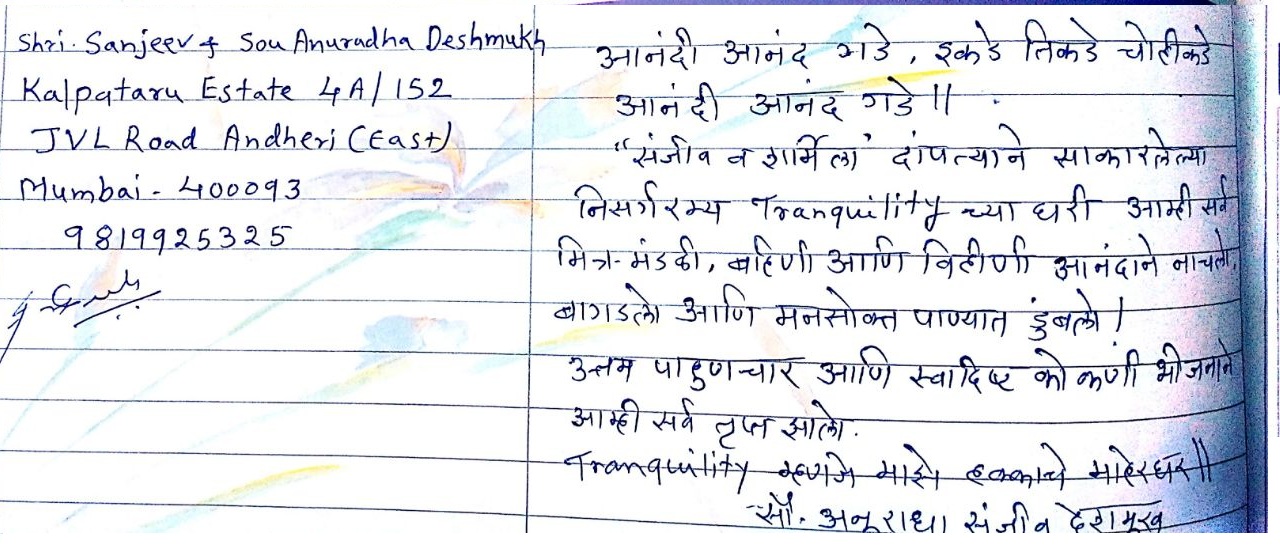 Shri. Sanjeev & Sou Anuradha Deshmukh
Kalpataru Estate 4A/152
JVL Road Andheri (East)
Mumbai - 400093
9819925325
आनंदी आनंद गडे, इकडे तिकडे चोहीकडे
आनंदी आनंद गडे ॥
"संजीव व शर्मिला" दांपत्याने साकारलेल्या
निसर्गरम्य Tranquility च्या घरी आम्ही सर्व
मित्र-मंडळी, बहिणी आणि विहीणी आनंदाने नाचलो,
बागडलो आणि मनसोक्त पाण्यात डुंबलो!
उत्तम पाहुणचार आणि स्वादिष्ट कोकणी भोजनाने
आम्ही सर्व तृप्त झालो.
Tranquility म्हणजे माझे हक्काचे माहेरघर॥
सौ. अनूराधा संजीव देशमूख